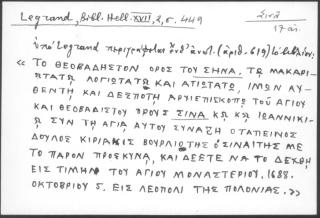 Legrand, Bibl. Hell. XVII, 2, σ. 449
Σινᾶ
17 αἰ.
ὑπὸ Legrand περιγράφεται ἐνῷ ἀνωτ. (ἀριθ. 619)
« ΤΟ ΘΕΟΒΑΔΗΣΤΟΝ ΟΡΟΣ ΤΟΥ ΣΗΝΑ, ΤΩ ΜΑΚΑΡΙ-
ΩΤΑΤΩ ΛΟΓΙΩΤΑΤΩ ΚΑΙ ΑΓΙΩΤΑΤΩ, ΙΜΩΝ ΑΥ
ΘΕΝΤΗ ΚΑΙ ΔΕΣΠΟΤΗ ΑΡΧΙΕΠΙΣΚΟΠΩ ΤΟΥ ΑΓΙΟΥ
ΚΑΙ ΘΕΟΒΑΔΙΣΤΟΥ ΟΡΟΥΣ ΣΙΝΑ ΚΩ ΚΩ ΙΩΑΝΝΙΚΙ-
Ω ΣΥΝ ΤΗ ΑΓΙΑ ΑΥΤΟΥ ΣΥΝΑΞΗ Ο ΤΑΠΕΙΝΟΣ
ΔΟΥΛΟΣ ΚΙΡΙΑΚΙΣ ΒΟΥΡΛΙΟΤΗΣ Ο ΣΙΝΑΙΤΗΣ ΜΕ
ΤΟ ΠΑΡΟΝ ΠΡΟΣΚΥΝΑ, ΚΑΙ ΔΕΕΤΕ ΝΑ ΤΟ ΔΕΧΘΗ
ΕΙΣ ΤΙΜΗΝ ΤΟΥ ΑΓΙΟΥ ΜΟΝΑΣΤΕΡΙΟΥ, 1688.
ΟΚΤΟΒΡΙΟΥ 5. ΕΙΣ ΛΕΟΠΟΛΙ ΤΗΣ ΠΟΛΟΝΙΑΣ. »